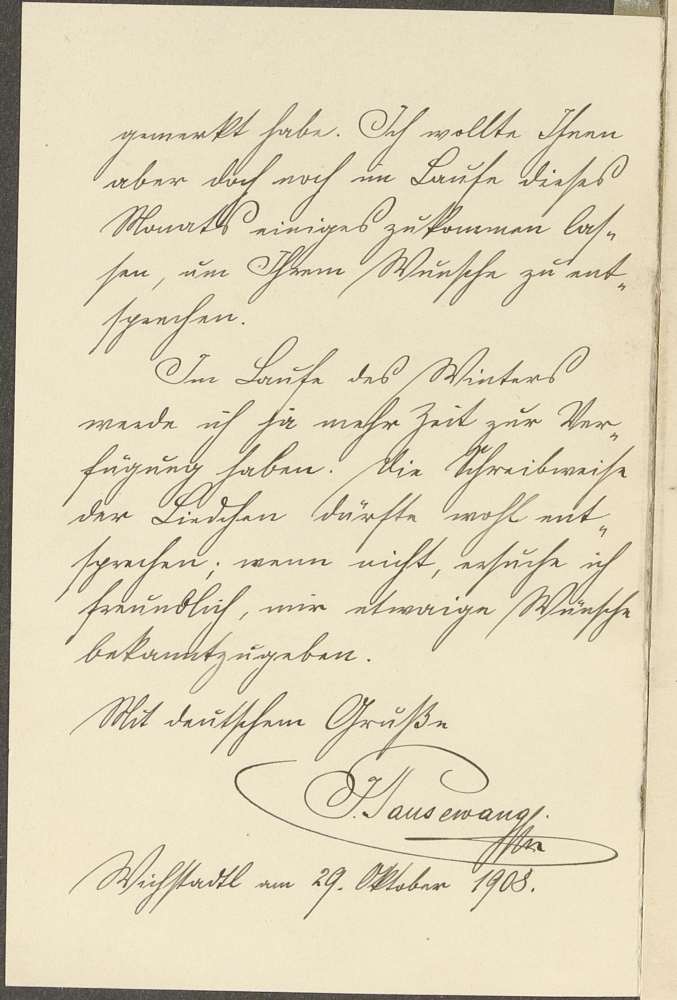 gemerkt habe. Ich wollte Ihnen
aber doch noch im Laufe dieses
Monats einiges zukommen las„
sen, um Ihrem Wunsche zu ent„
sprechen.
Im Laufe des Winters
werde ich ja mehr Zeit zur Ver„
fügung haben. Die Schreibweise
der Liedchen dürfte wohl ent„
sprechen; wenn nicht, ersuche ich
freundlich, mir etwaige Wünsche
bekanntzugeben.
Mit deutschem Gruße
J. Pausewang.
Wichstadtl am 29. Oktober 1908.